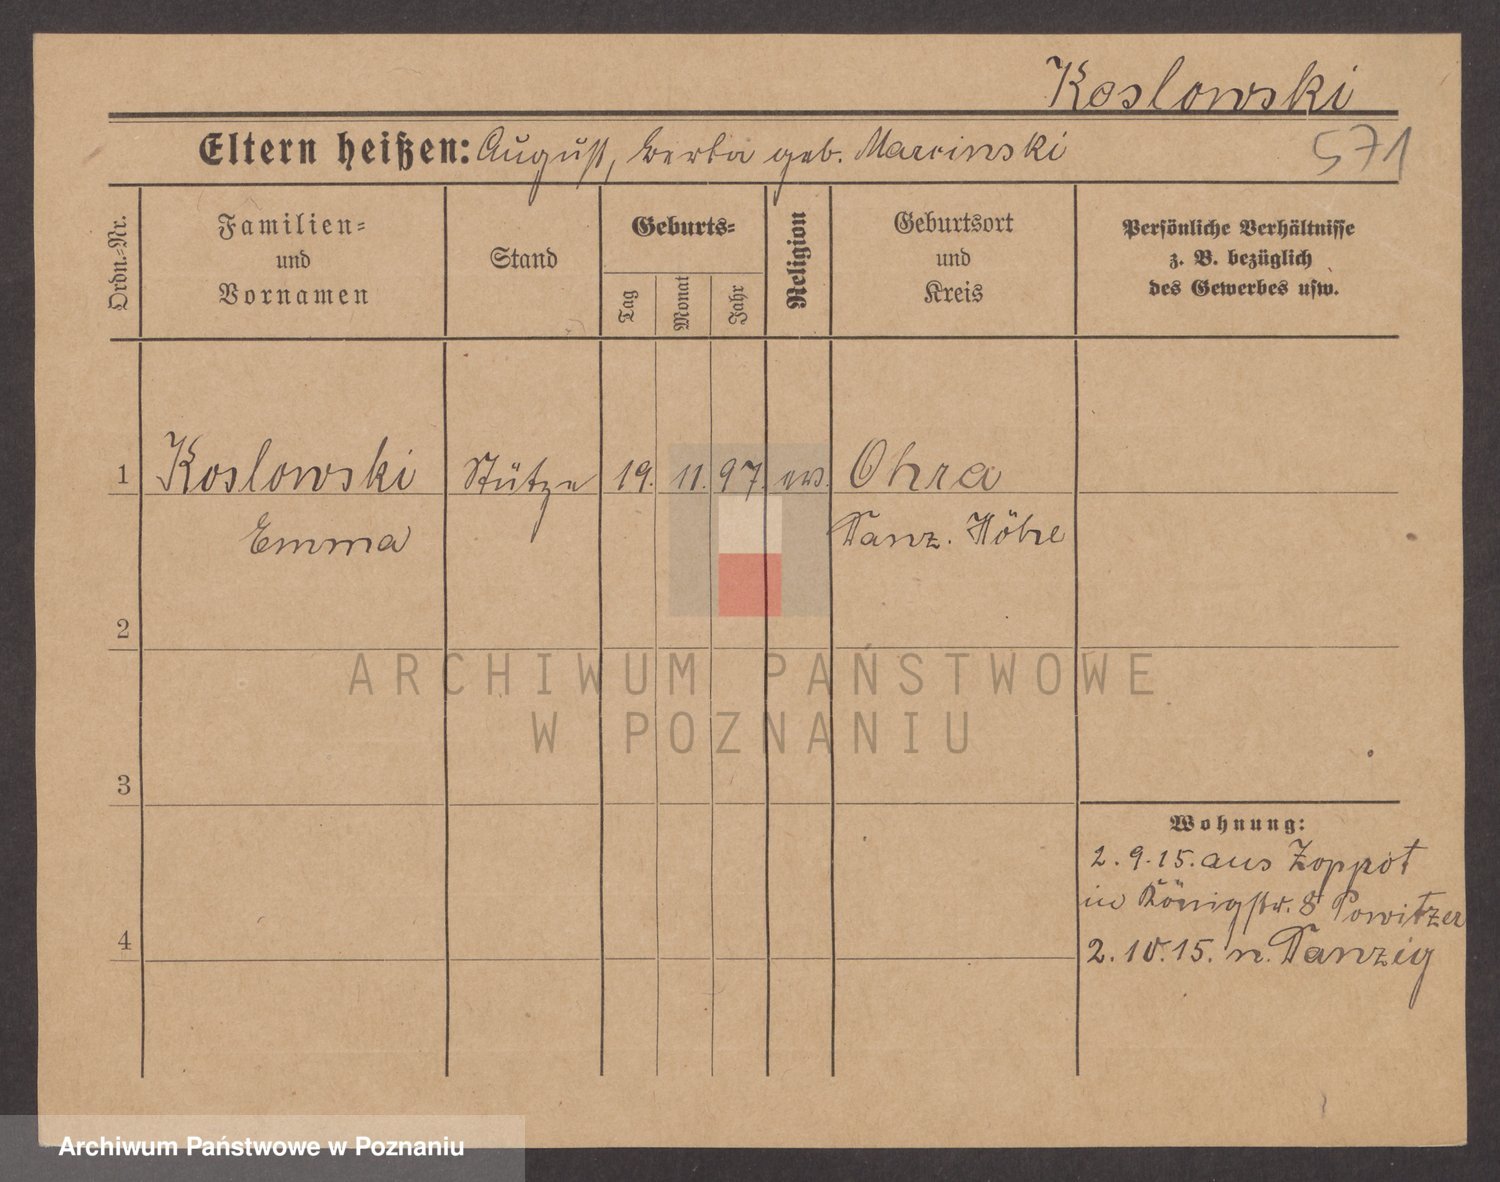 Koslowski
Eltern heißen: August, Berta geb. Marcinski
571
Ordn.=Nr.
Familien=
und
Vornamen
Stand
Geburts=
Tag
Monat
Jahr
Religion
Geburtsort
und
Kreis
Persönliche Verhältnisse
z. B. bezüglich
des Gewerbes usw.
1 Koslowski Stütze 19. 11. 97. ev. Ohra
Emma Danz. Höhe
2
ARCHIWUM PAŃSTWOWE
W POZNANIU
3
Wohnung:
2. 9. 15. aus Zoppot
in Königstr. 8 Powitzer
4
2. 10. 15. n. Danzig
Archiwum Państwowe w Poznaniu